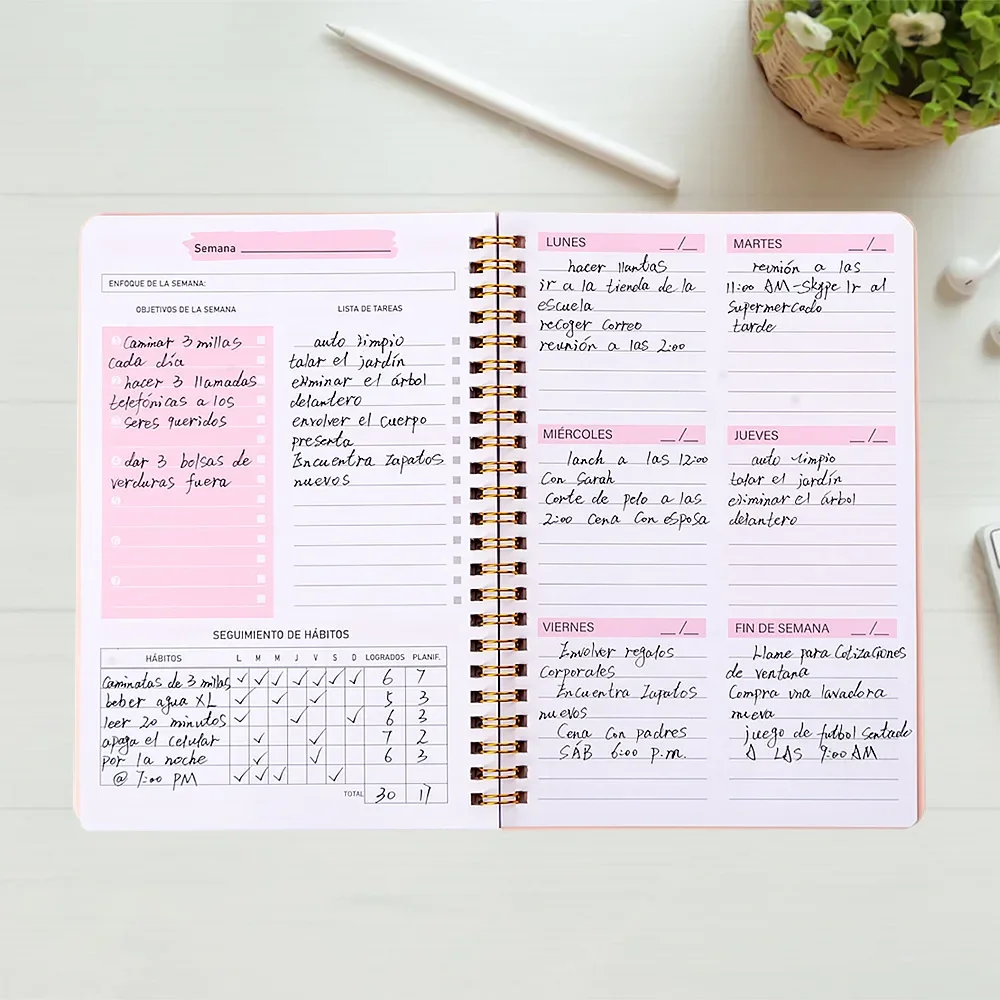 Semana
ENFOQUE DE LA SEMANA:
OBJETIVOS DE LA SEMANA
Caminar 3 millas
cada día
hacer 3 llamadas
telefónicas a los
seres queridos
dar 3 bolsas de
verduras fuera
LISTA DE TAREAS
auto limpio
talar el jardín
eliminar el árbol
delantero
envolver el cuerpo
presenta
Encuentra Zapatos
nuevos
SEGUIMIENTO DE HÁBITOS
HÁBITOS L M M J V S D LOGRADOS PLANIF.
Caminatas de 3 millas ✓ ✓ ✓ ✓ ✓ ✓ ✓ 6 7
beber agua XL ✓ ✓ ✓ 5 3
leer 20 minutos ✓ ✓ ✓ 6 3
apaga el celular ✓ ✓ 7 2
por la noche ✓ ✓ 6 3
@ 7:00 PM ✓ ✓ ✓ ✓
TOTAL 30 17
LUNES __/__
hacer llantas
ir a la tienda de la
escuela
recoger correo
reunión a las 2:00
MARTES __/__
reunión a las
11:00 AM-Skype Ir al
Supermercado
tarde
MIÉRCOLES __/__
lanch a las 12:00
Con Sarah
Corte de pelo a las
2:00 Cena Con esposa
JUEVES __/__
auto limpio
talar el jardín
eliminar el árbol
delantero
VIERNES __/__
Envolver regalos
Corporales
Encuentra Zapatos
nuevos
Cena con padres
SÁB 6:00 p.m.
FIN DE SEMANA __/__
Llame para Cotizaciones
de ventana
Compra una lavadora
nueva
juego de futbol Sentado
A LAS 9:00 AM